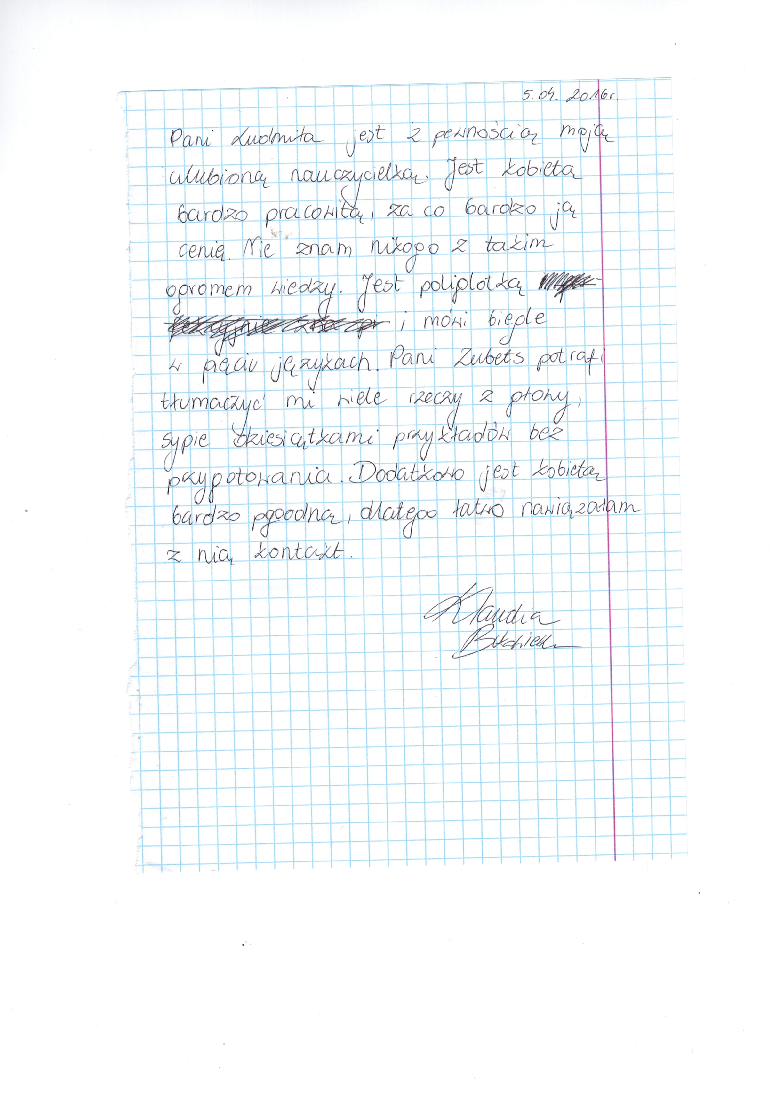 5.04.2016r.
Pani Ludmiła jest z pewnością moją
ulubioną nauczycielką. Jest kobietą
bardzo pracowitą, za co bardzo ją
cenię. Nie znam nikogo z takim
ogromem wiedzy. Jest poliglotką
i mówi biegle
w pięciu językach. Pani Zubets potrafi
tłumaczyć mi wiele rzeczy z głowy,
sypie dziesiątkami przykładów bez
przygotowania. Dodatkowo jest kobietą
bardzo pgoodną, dlatego łatwo nawiązałam
z nią kontakt.
Klaudia